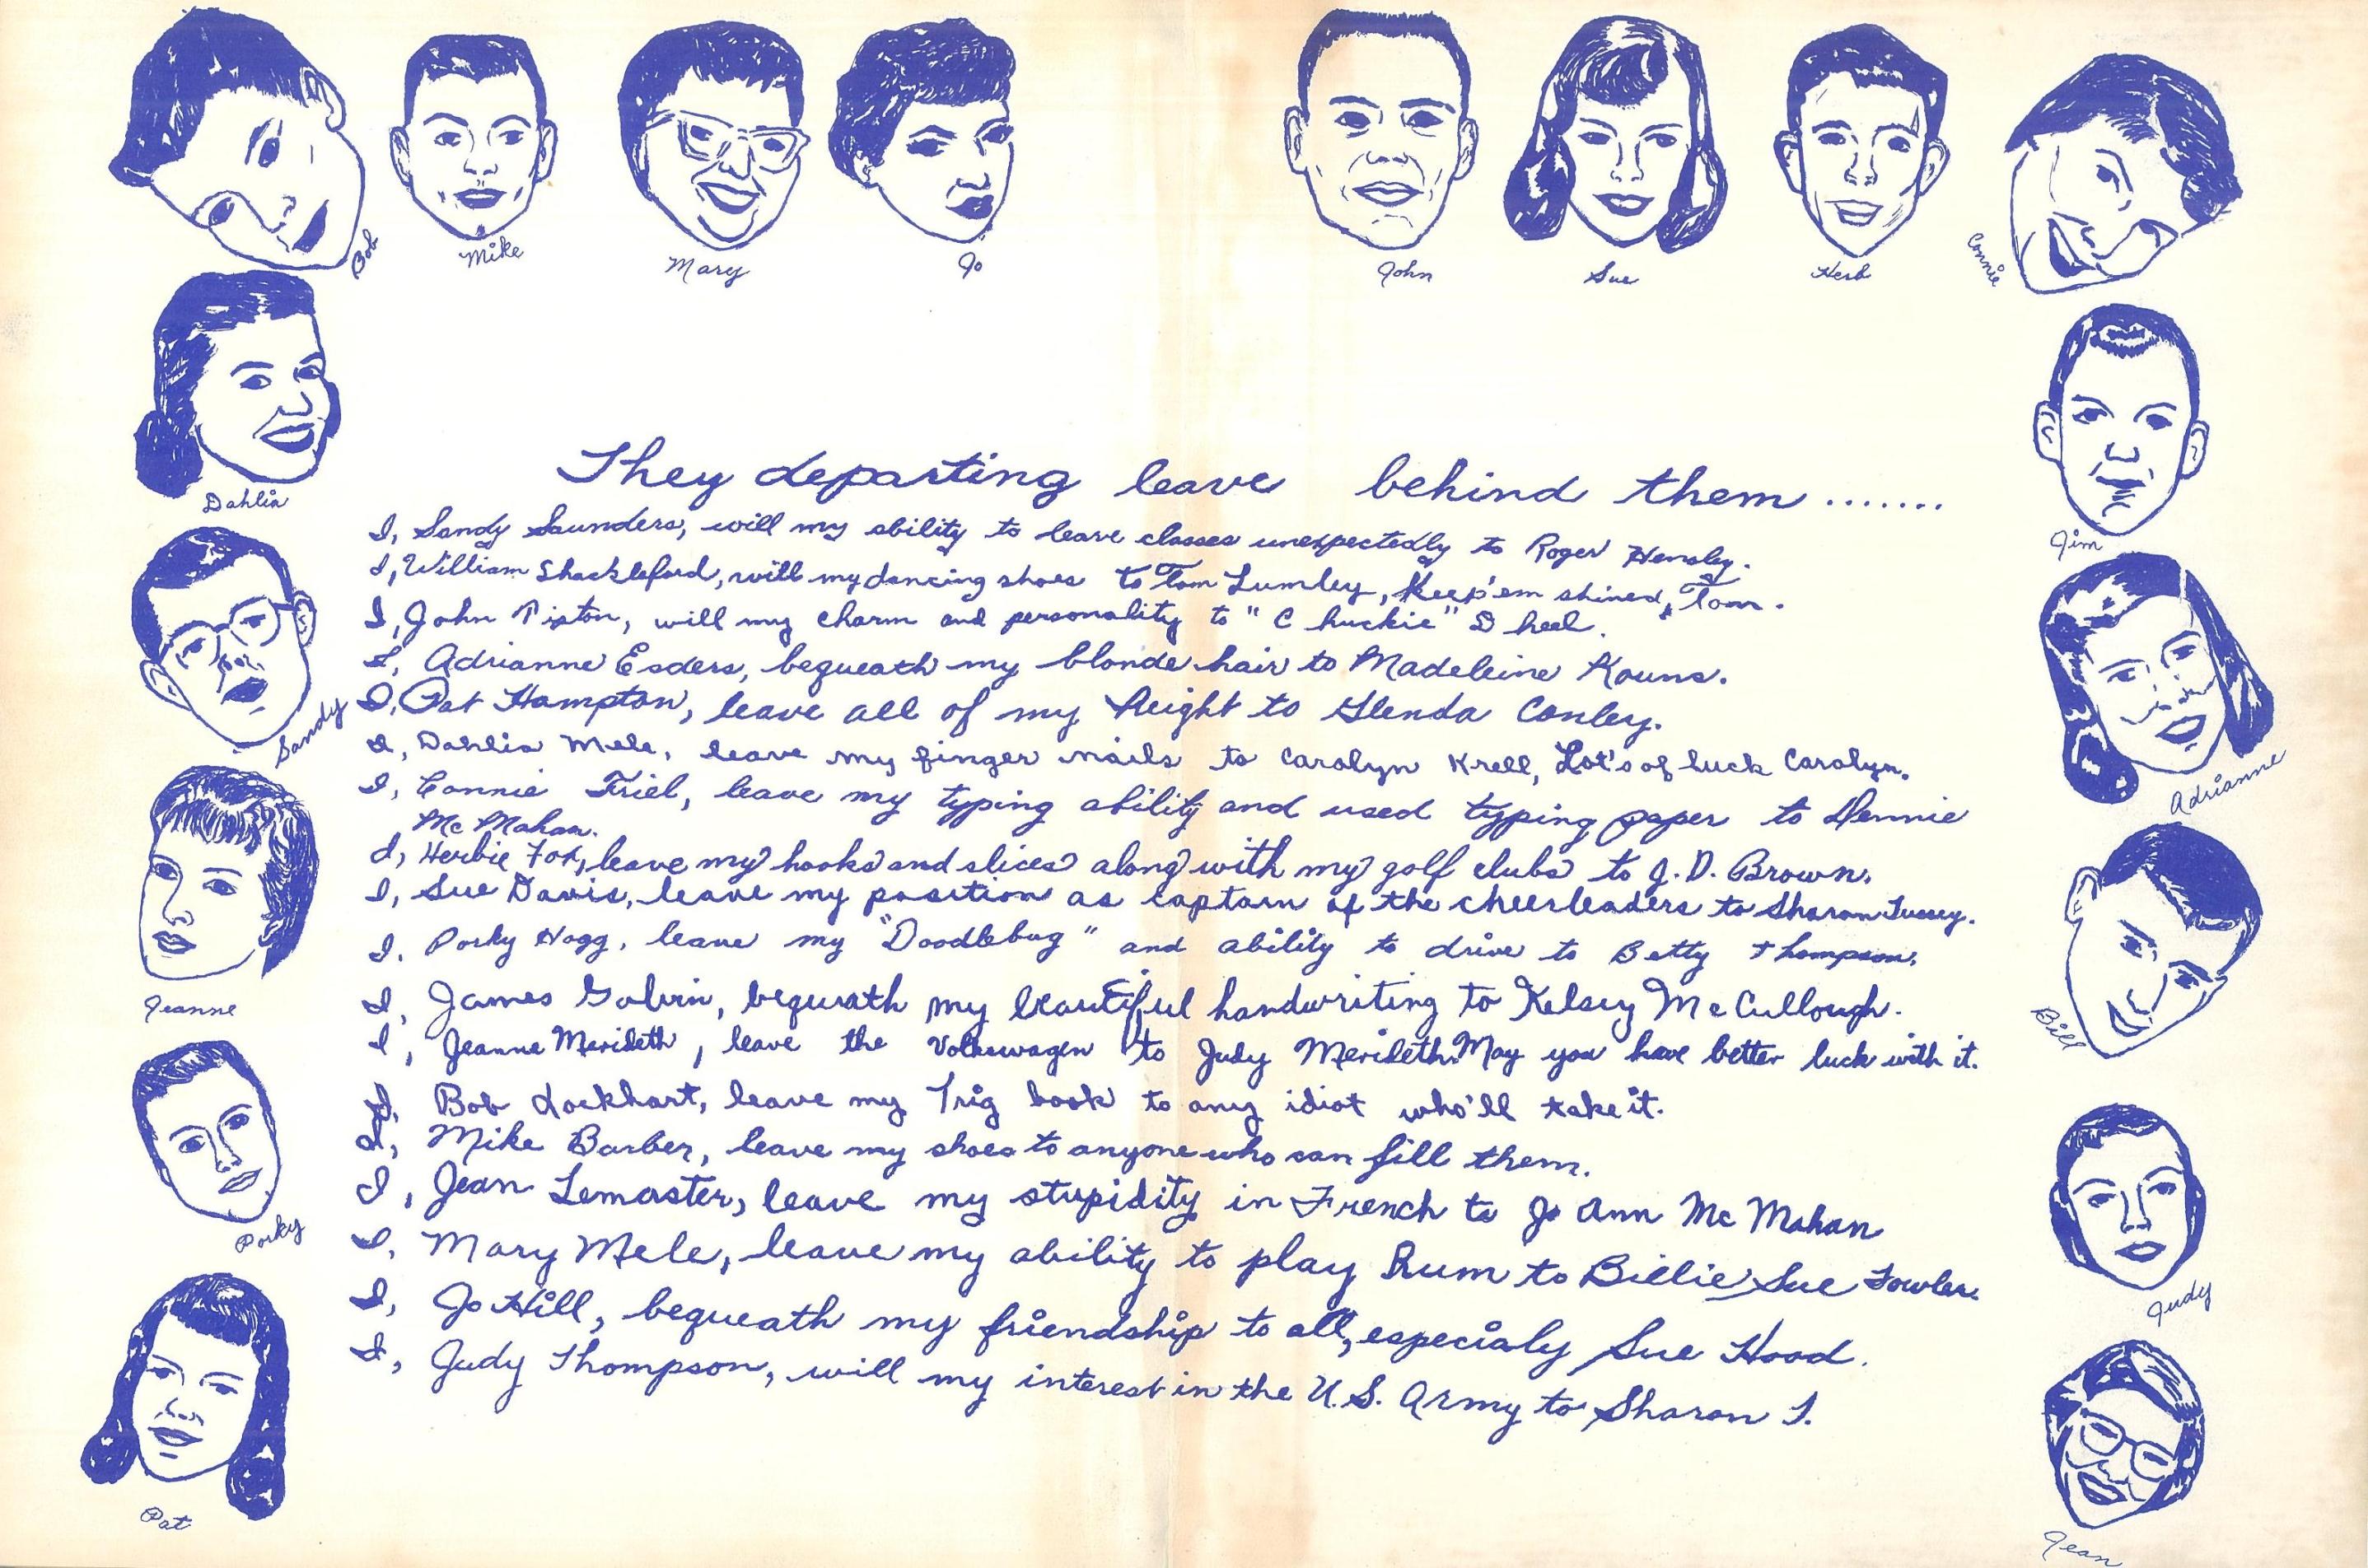 Bob
Mike
Mary
Jo
John
Sue
Herb
Connie
Dahlia
Jim
Sandy
Adrianne
Jeanne
Bill
Porky
Judy
Pat
Jean
They departing leave behind them .......
I, Sandy Saunders, will my ability to leave classes unexpectedly to Roger Hensley.
I, William Shackleford, will my dancing shoes to Tom Lumley, Keep'em shined, Tom.
I, John Piston, will my charm and personality to "Chuckie" Dheel.
I, Adrianne Esders, bequeath my blonde hair to Madeleine Kouns.
I, Pat Hampton, leave all of my height to Glenda Conley.
I, Dahlia Mele, leave my finger nails to Carolyn Krell, Lot's of luck Carolyn.
I, Connie Friel, leave my typing ability and used typing paper to Dennie
Mc Mahan.
I, Herbie Fox, leave my hooks and slices along with my golf clubs to J. D. Brown.
I, Sue Davis, leave my position as captain of the cheerleaders to Sharon Tussey.
I, Porky Hogg, leave my "Doodlebug" and ability to drive to Betty Thompson.
I, James Galvin, bequeath my beautiful handwriting to Kelsey McCullough.
I, Jeanne Merideth, leave the Volkswagen to Judy Merideth. May you have better luck with it.
I, Bob Lockhart, leave my Trig book to any idiot who'll take it.
I, Mike Barber, leave my shoes to anyone who can fill them.
I, Jean Lemaster, leave my stupidity in French to Jo Ann Mc Mahan
I, Mary Mele, leave my ability to play Rum to Billie Sue Fowler.
I, Jo Hill, bequeath my friendship to all, especialy Sue Hood.
I, Judy Thompson, will my interest in the U.S. Army to Sharon T.